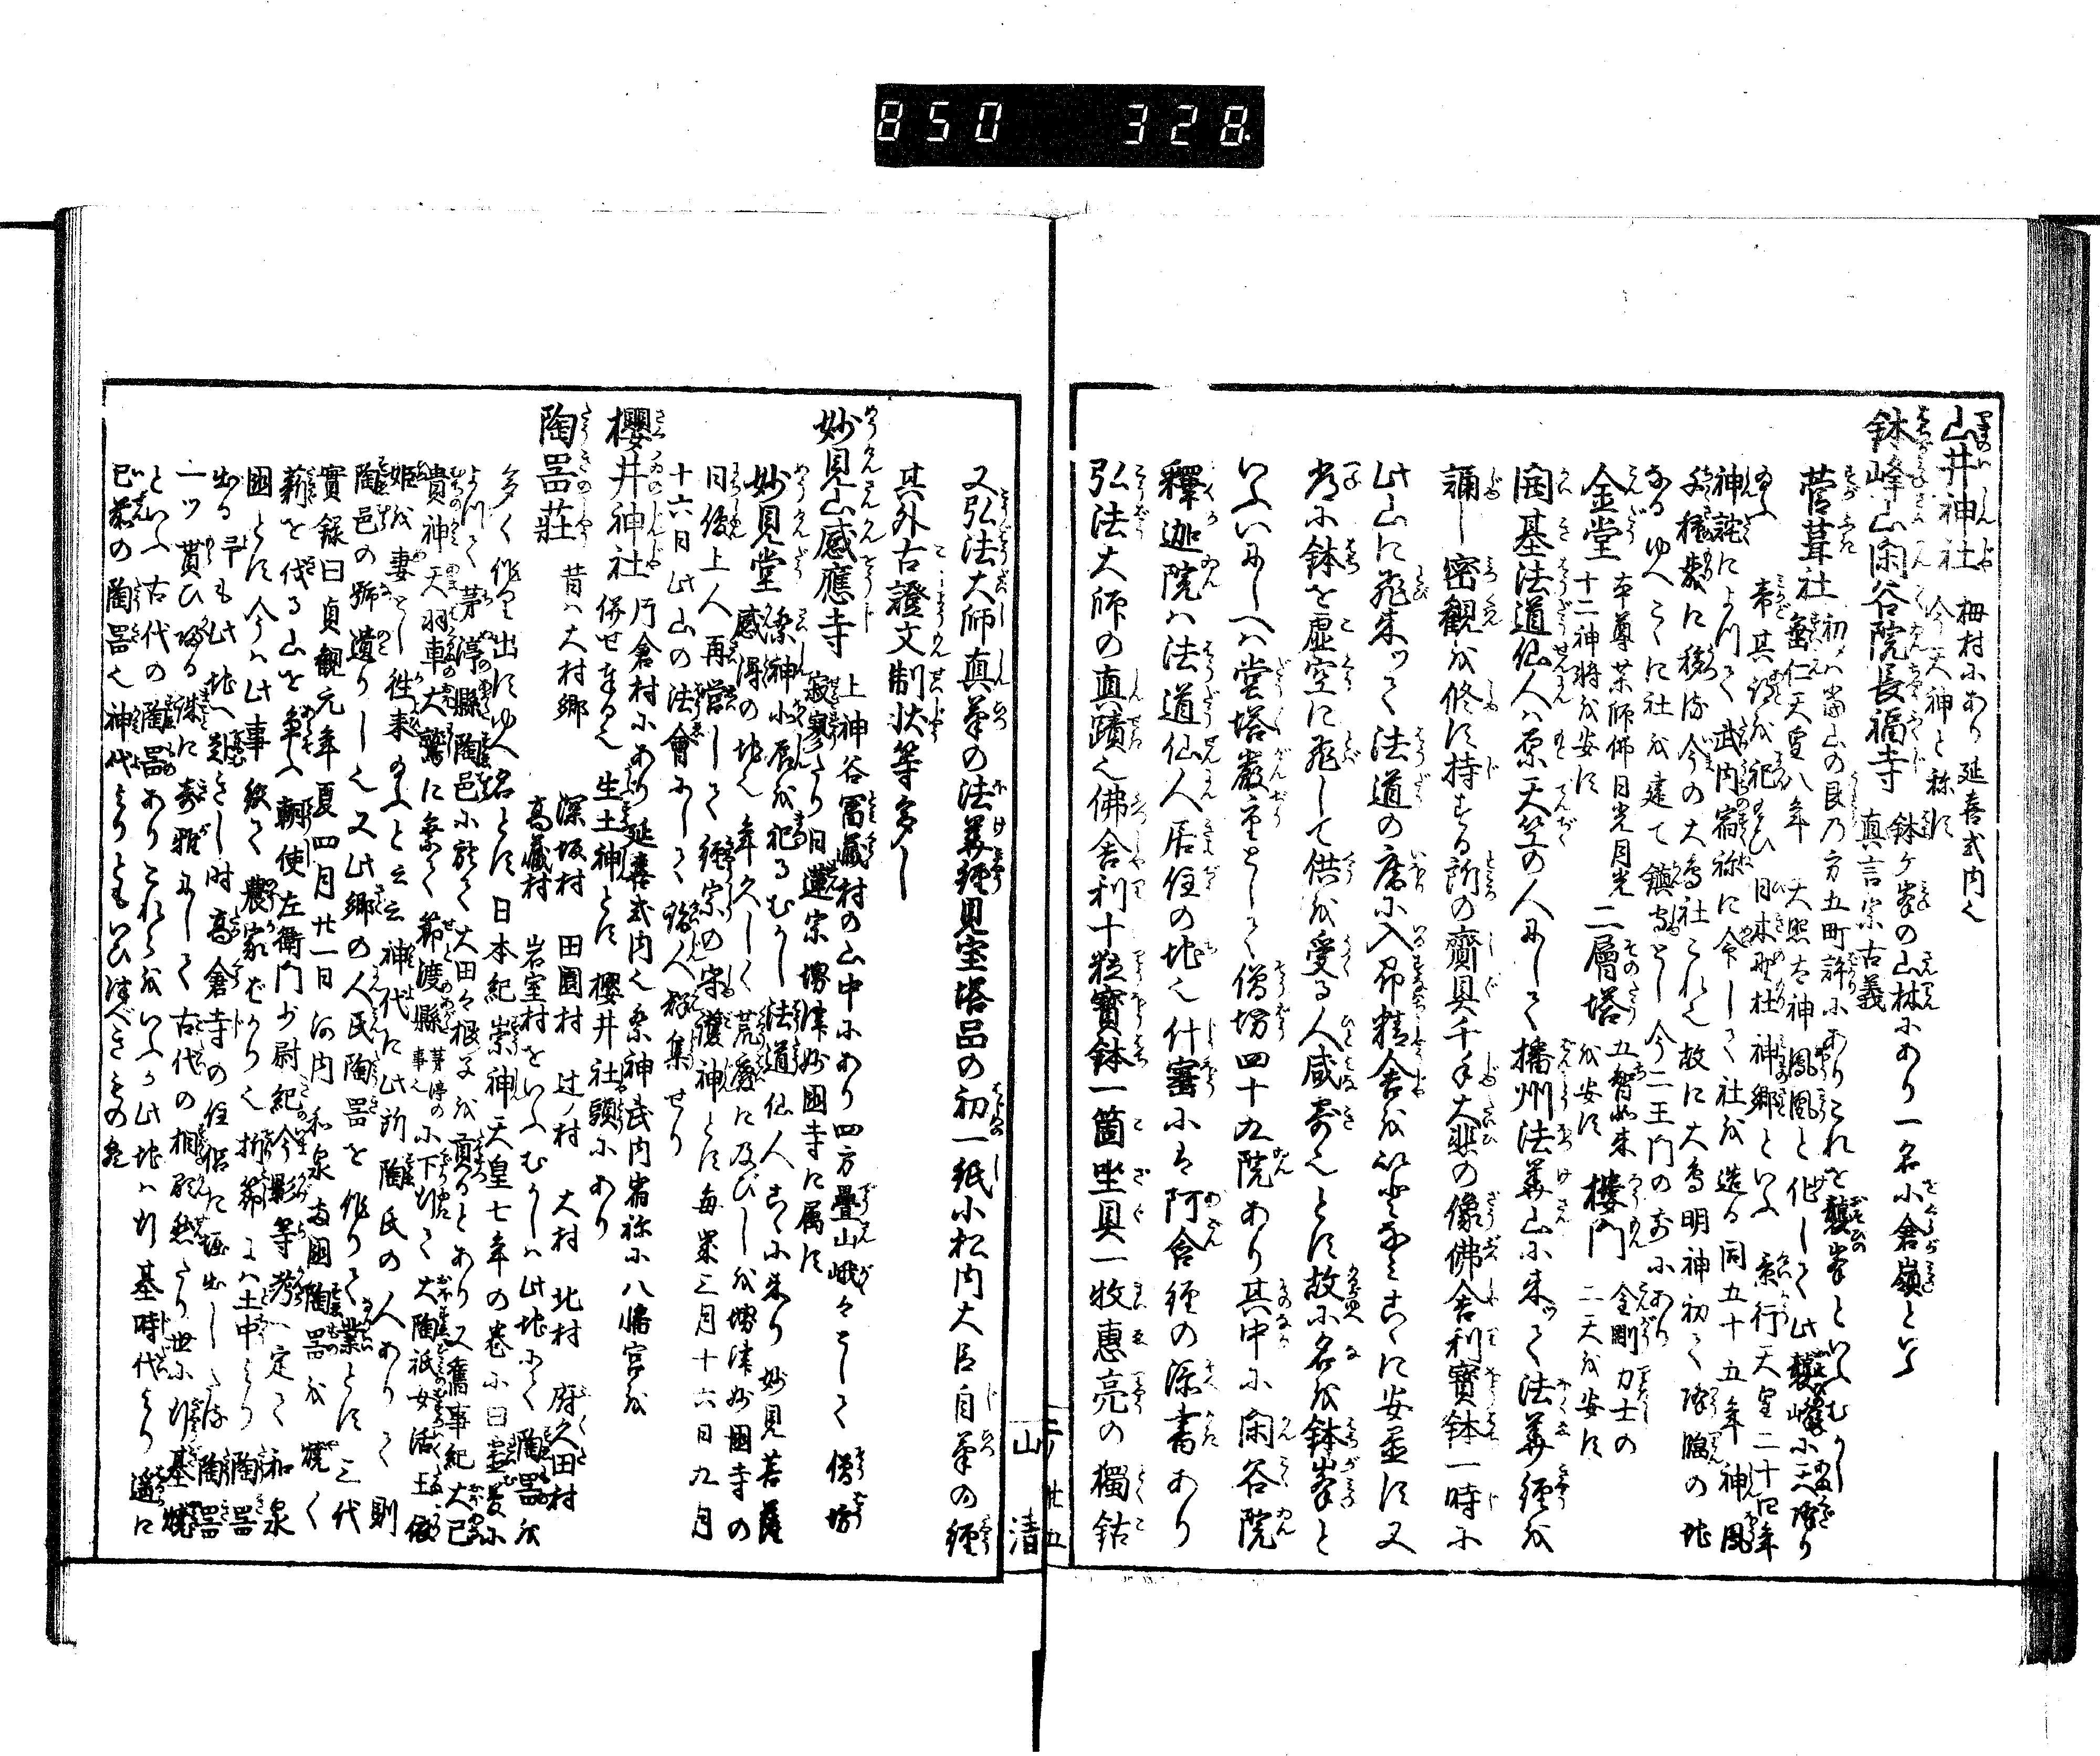 850 328
山井神社 栂村にあり延喜式内也
今天神と称す
鉢峰山閑谷院長福寺 鉢ヶ峯の山林にあり一名小倉嶺といふ
真言宗古義
菅葺社 初めハ当山の艮の方五町許にありこれを襲峯といふむかし
垂仁天皇八年 天照太神鳳凰と化して此襲峰に天降り
帝其神を祀給ひ 日本聖社神郷といふ 景行天皇二十年
神託によつて武内宿祢に令して社を造る同五十五年神鳳
今の大鳥社これ也故に大鳥明神初て降臨の地
なるゆへこゝに社を建て鎮守とし今二王門の前にあり
金堂 本尊薬師佛日光月光
十二神将を安す
二層塔 五智如来
を安す
楼門 金剛力士の
二天を安す
開基法道仙人ハ原天竺の人にして播州法華山に来つて法華経を
誦し密観を修す持する所の齋具千手大悲の像佛舎利寶鉢一時に
此山に飛来つて法道の庵に入即精舎を こゝに安置す又
常に鉢を虚空に飛して供を受る人咸奇也とす故に名を鉢峯と
いふいにしへハ堂塔厳重として僧坊四十九院あり其中に閑谷院
釋迦院ハ法道仙人居住の地也什寳にハ阿含経の添書あり
弘法大師の真蹟也佛舎利十粒寳鉢一箇坐具一枚惠亮の獨鈷
山 廿五
清
又弘法大師真筆の法華経見宝塔品の初一紙小松内大臣自筆の経
其外古證文制状等多し
妙見山感應寺 上神谷冨蔵村の山中にあり四方疊山峨々として僧坊
寂寥たり日蓮宗堺津妙國寺に属す
妙見堂 の神北辰を祀るむかし法道仙人こゝに来り妙見菩薩
感得の地也年久しく荒廃に及びしを堺津妙國寺の
日俊上人再営して経宗の守護神とす毎歳三月十六日九月
十六日此山の法會にして諸人群集せり
櫻井神社 片倉村にあり延喜式内也祭神武内宿祢に八幡宮を
併せまつる也 生土神とす櫻井社頭にあり
陶噐荘 昔ハ大村郷 深坂村 田園村 辻ノ村 大村 北村 府久田村
高蔵村 岩室村をいふむかしハ此地にて陶噐を
多く作り出すゆへ名とす日本紀崇神天皇七年の巻に曰
よつて茅渟縣陶邑に於て大田々根子を貢るとあり又舊事紀大己
貴神天羽車大鷲に乗て節渡縣 茅渟の
事也 に下行て大陶祇女活玉依
姫を妻とし往来給ふと云云神代に此所陶氏の人ありて則
陶邑の号遺りし也又此郷の人民陶噐を作りて業とす三代
實録曰貞観元年夏四月廿一日河内和泉両國陶噐を焼く
薪を伐る山を争ふ朝使左衛門少尉紀今影等考へ定て和泉
國とす今ハ此事絶て農家ばかり也 折節にハ土中より陶噐
出る予も此地へ遊きし時高倉寺の住侶た堀出したる陶噐
一ツ貰ひ帰る 誠に奇雅にして古代の相顕然たり世に行基焼
といふ古代の陶噐ありこれらをいふか此地ハ行基時代より遥に
已前の陶噐也神代よりともいひ傳べきもの歟